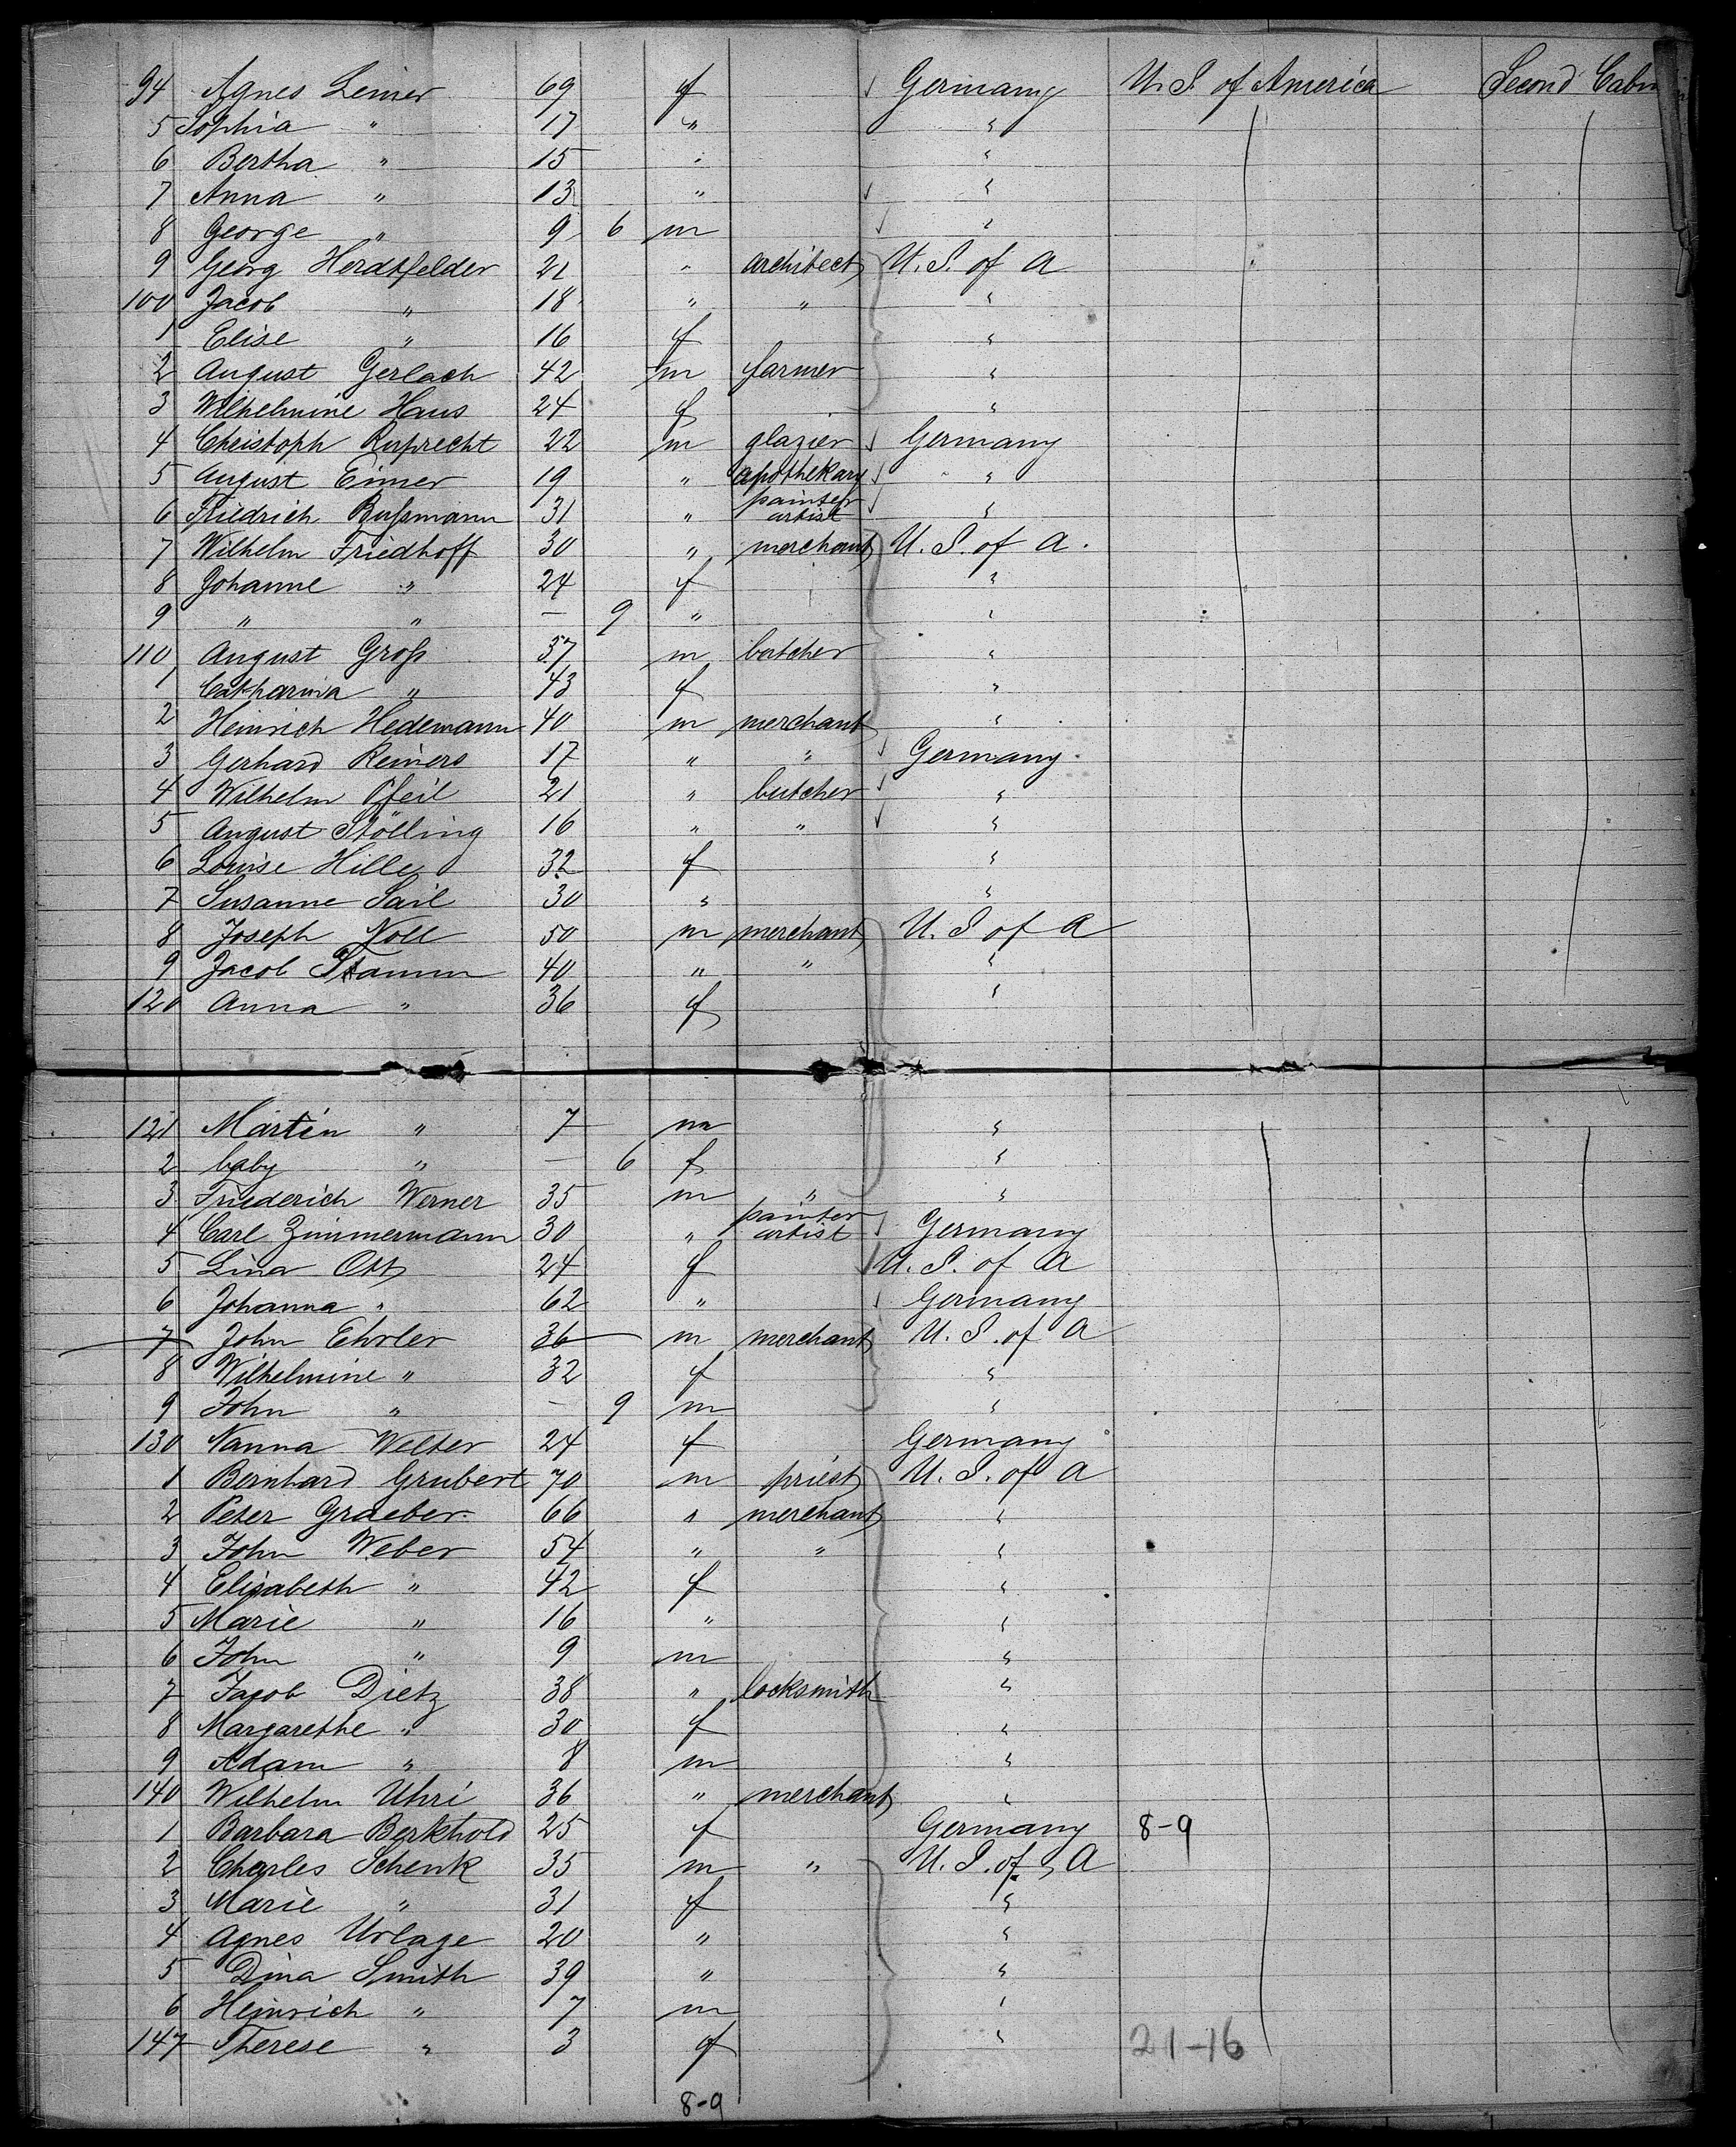 94 Agnes Leimer 69 f Germany U. S. of America Second Cabin
5 Sophia " 17 " "
6 Bertha " 15 " "
7 Anna " 13 " "
8 George " 9 6 m "
9 Georg Herdtfelder 21 " architect U. S. of A
100 Jacob " 18 " " "
1 Elise " 16 f "
2 August Gerlach 42 m farmer "
3 Wilhelmine Haus 24 f "
4 Christoph Ruprecht 22 m glazier Germany
5 August Eimer 19 " apothekary "
painter
6 Friedrich Bußmann 31 " artist "
7 Wilhelm Friedhoff 30 " merchant U. S. of A.
8 Johanne " 24 f "
9 " " – 9 " "
110 August Groß 37 m butcher "
1 Catharina " 43 f "
2 Heinrich Hedemann 40 m merchant "
3 Gerhard Reiners 17 " " Germany
4 Wilhelm Pfeil 21 " butcher "
5 August Stölling 16 " " "
6 Louise Hille 32 f "
7 Susanne Sail 30 " "
8 Joseph Noll 50 m merchant U. S. of A
9 Jacob Stamm 40 " " "
120 Anna " 36 f "
121 Martin " 7 m "
2 baby " – 6 f "
3 Friederich Werner 35 m " "
painter
4 Carl Zimmermann 30 " artist Germany
5 Lina Ott 24 f U. S. of A
6 Johanna " 62 " Germany
7 John Ehrler 36 m merchant U. S. of A
8 Wilhelmine " 32 f "
9 John " – 9 m "
130 Nanna Welter 24 f Germany
1 Bernhard Grubert 70 m priest U. S. of A
2 Peter Graeber 66 " merchant "
3 John Weber 54 " " "
4 Elisabeth " 42 f "
5 Marie " 16 " "
6 John " 9 m "
7 Jacob Dietz 38 " locksmith "
8 Margarethe " 30 f "
9 Adam " 8 m "
140 Wilhelm Uhri 36 " merchant "
1 Barbara Berkhold 25 f Germany 8-9
2 Charles Schenk 35 m " U. S. of A
3 Marie " 31 f "
4 Agnes Urlage 20 " "
5 Dina Smith 39 " "
6 Heinrich " 7 m "
147 Therese " 3 f " 21-16
8-9